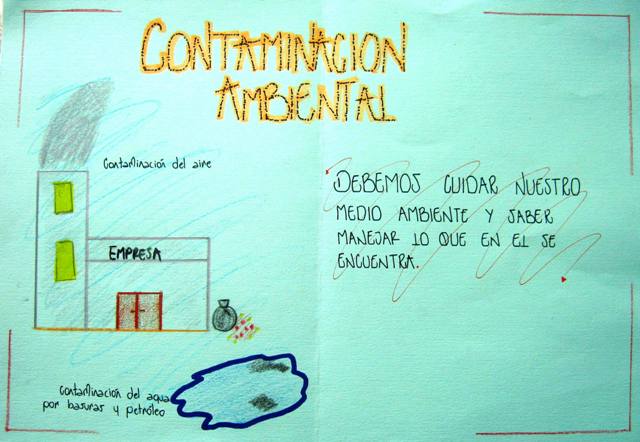 CONTAMINACION
AMBIENTAL
Contaminación del aire
EMPRESA
DEBEMOS CUIDAR NUESTRO
MEDIO AMBIENTE Y SABER
MANEJAR LO QUE EN EL SE
ENCUENTRA.
Contaminación del agua
por basuras y petróleo